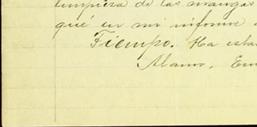 limpieza de las mangas
qué en mi informe
Tiempo. Ha esta
Alamo, Em